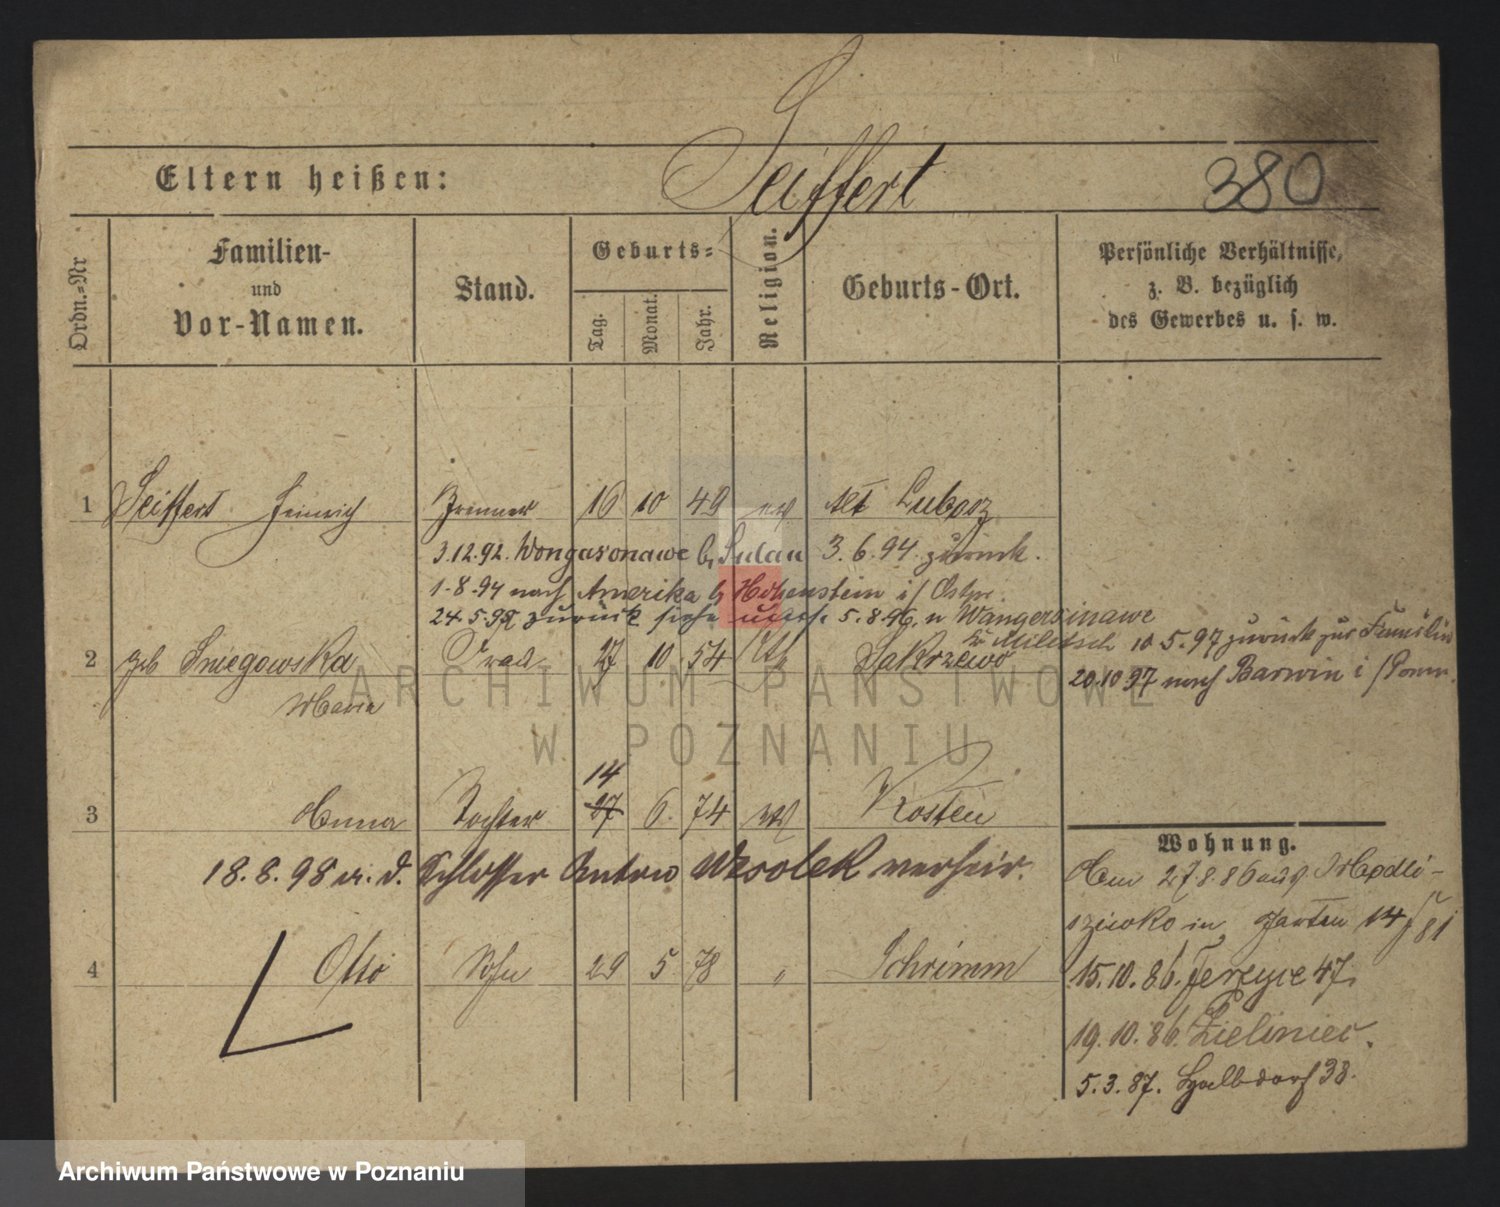 Seiffert
Eltern heißen:
380
Ordn.=Nr
Familien-
und
Vor-Namen.
Stand.
Geburts=
Tag.
Monat.
Jahr.
Religion.
Geburts-Ort.
Persönliche Verhältnisse,
z. B. bezüglich
des Gewerbes u. s. w.
1 Seiffert Heinrich 16 10 49 ev Alt Lubosz
3.12.92. Sulau 3.6.94. zurück.
1.8.94 nach Amerika b Hohenstein i/ Ostpr.
24.5.95 zurück siehe 5.8.96. n Wangersinawe
Militsch 10.5.97 zurück zur Familie
2 geb Sniegowska Frau 27 10 54 kth Zakrzewo
20.10.97 nach Barwin i/Pomm.
Maria
14
3 Anna Tochter 27 6. 74 ev Kosten
18.8.98 m. d. Schlosser Anton Wesolek verheir.
Wohnung.
Am 27.8.86 aus Modli-
szewko in Garten 14
15.10.86. Ferzyce 47.
4 Otto Sohn 29 5 78 " Schrimm
19.10.86. Zieliniec.
5.3.87. Halbdorf 38.
ARCHIWUM PAŃSTWOWE
W POZNANIU
Archiwum Państwowe w Poznaniu